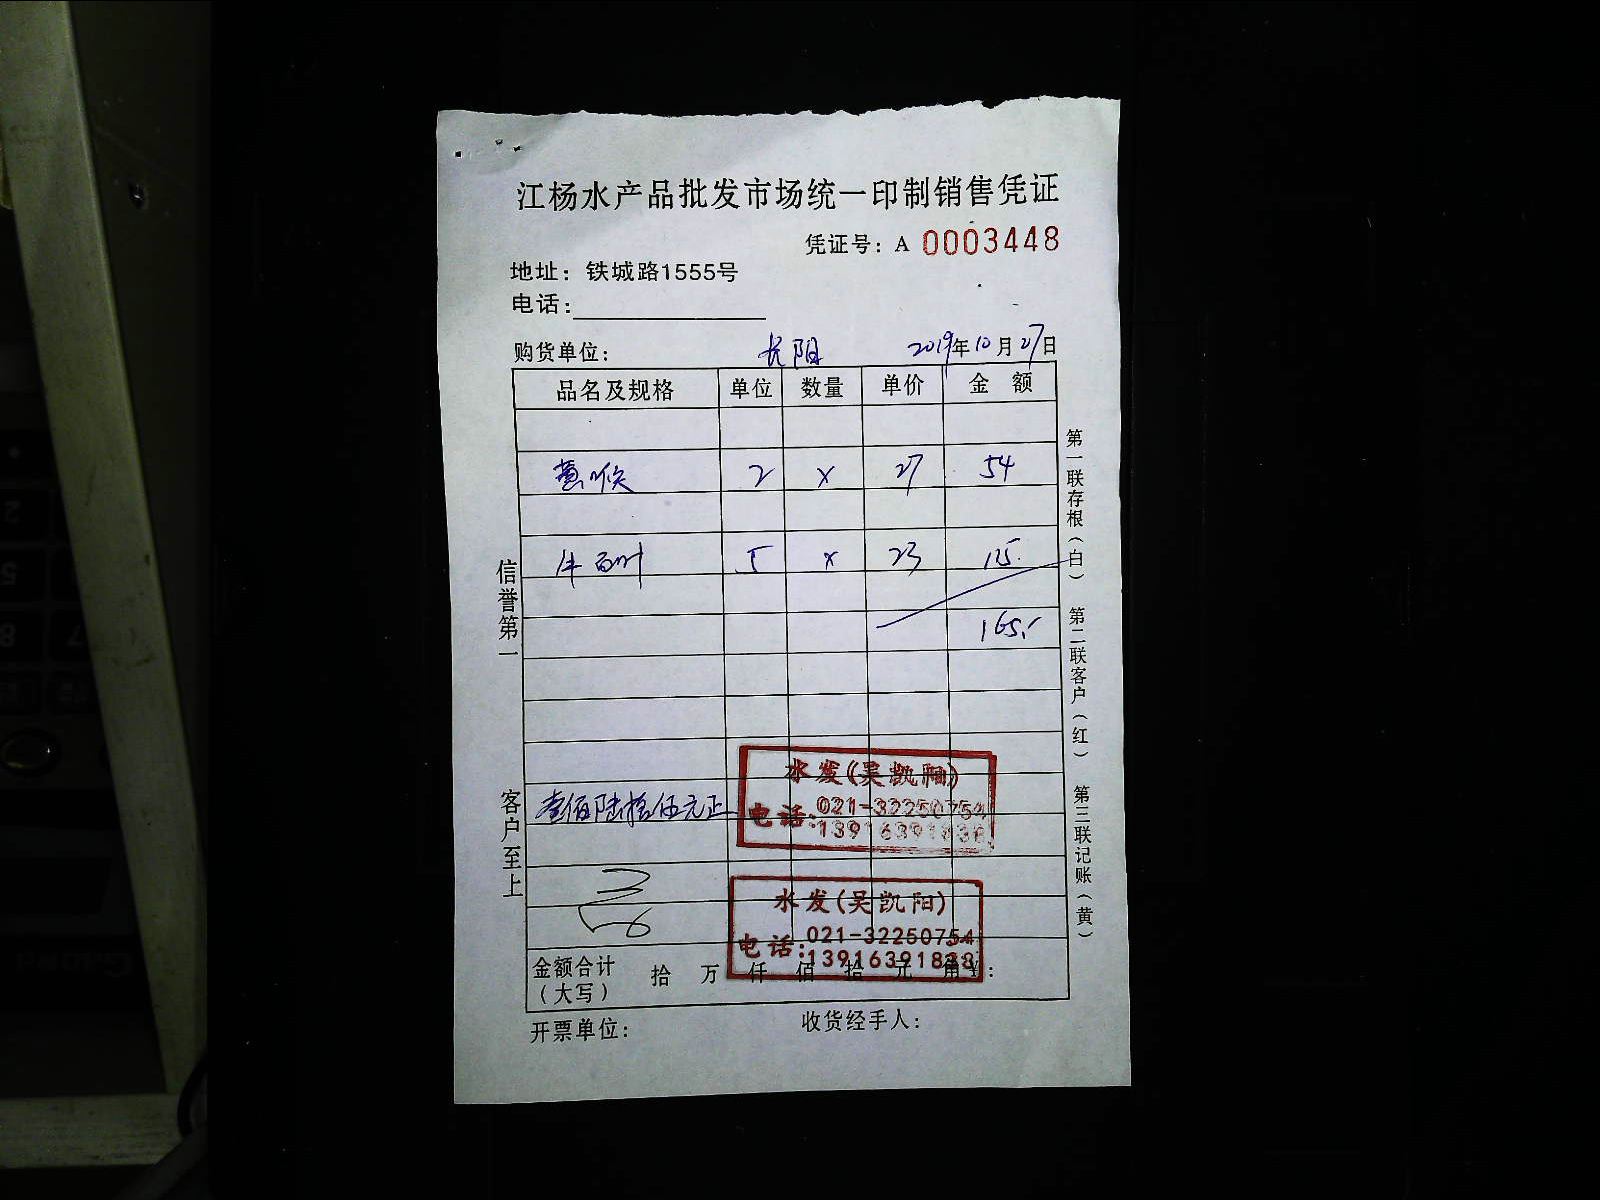 江杨水产品批发市场统一印制销售凭证
凭证号：A 0003448
地址：铁城路1555号
电话：
购货单位： 长阳 2019年10月27日
品名及规格 单位 数量 单价 金额
黄喉 2 x 27 54
牛百叶 5 x 23 115.
165.-
壹佰陆拾伍元正
水发(吴凯阳)
电话：021-32250754
13916391838
水发(吴凯阳)
电话：021-32250754
13916391838
金额合计（大写） 拾 万 仟 佰 拾 元 角 ¥：
开票单位： 收货经手人：
信誉第一
客户至上
第一联存根（白）
第二联客户（红）
第三联记账（黄）